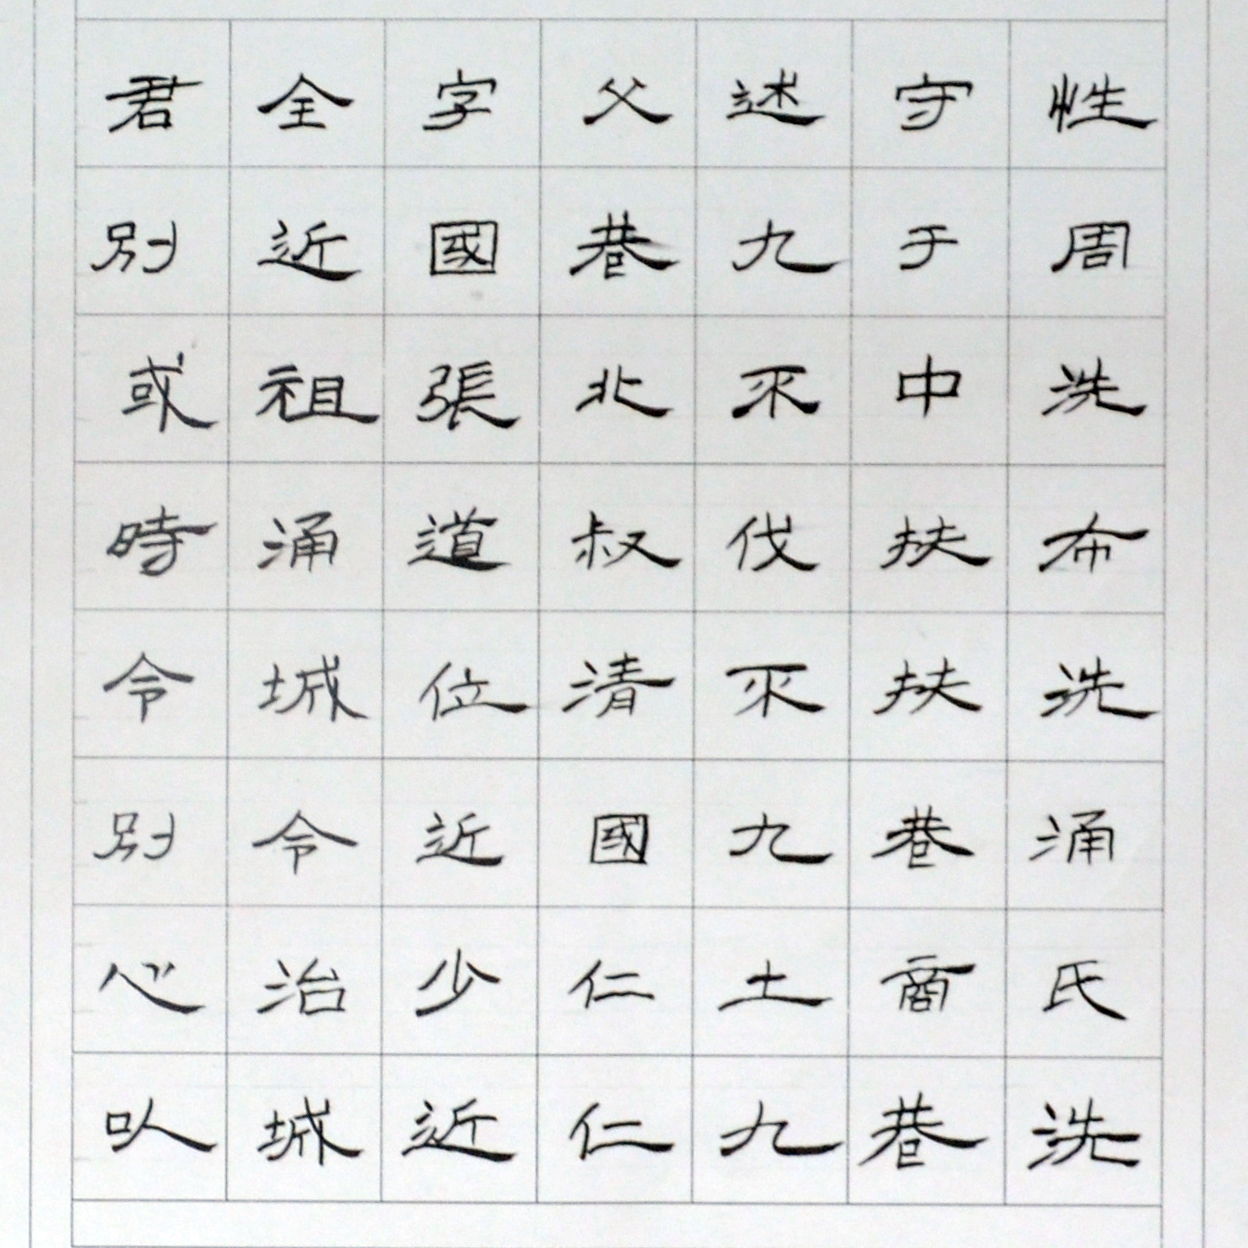 性周洗布洗涌氏洗
守于中扶扶巷商巷
述九不伐不九土九
父巷北叔清國仁仁
字國張道位近少近
全近祖涌城令治城
君別或時令別心以